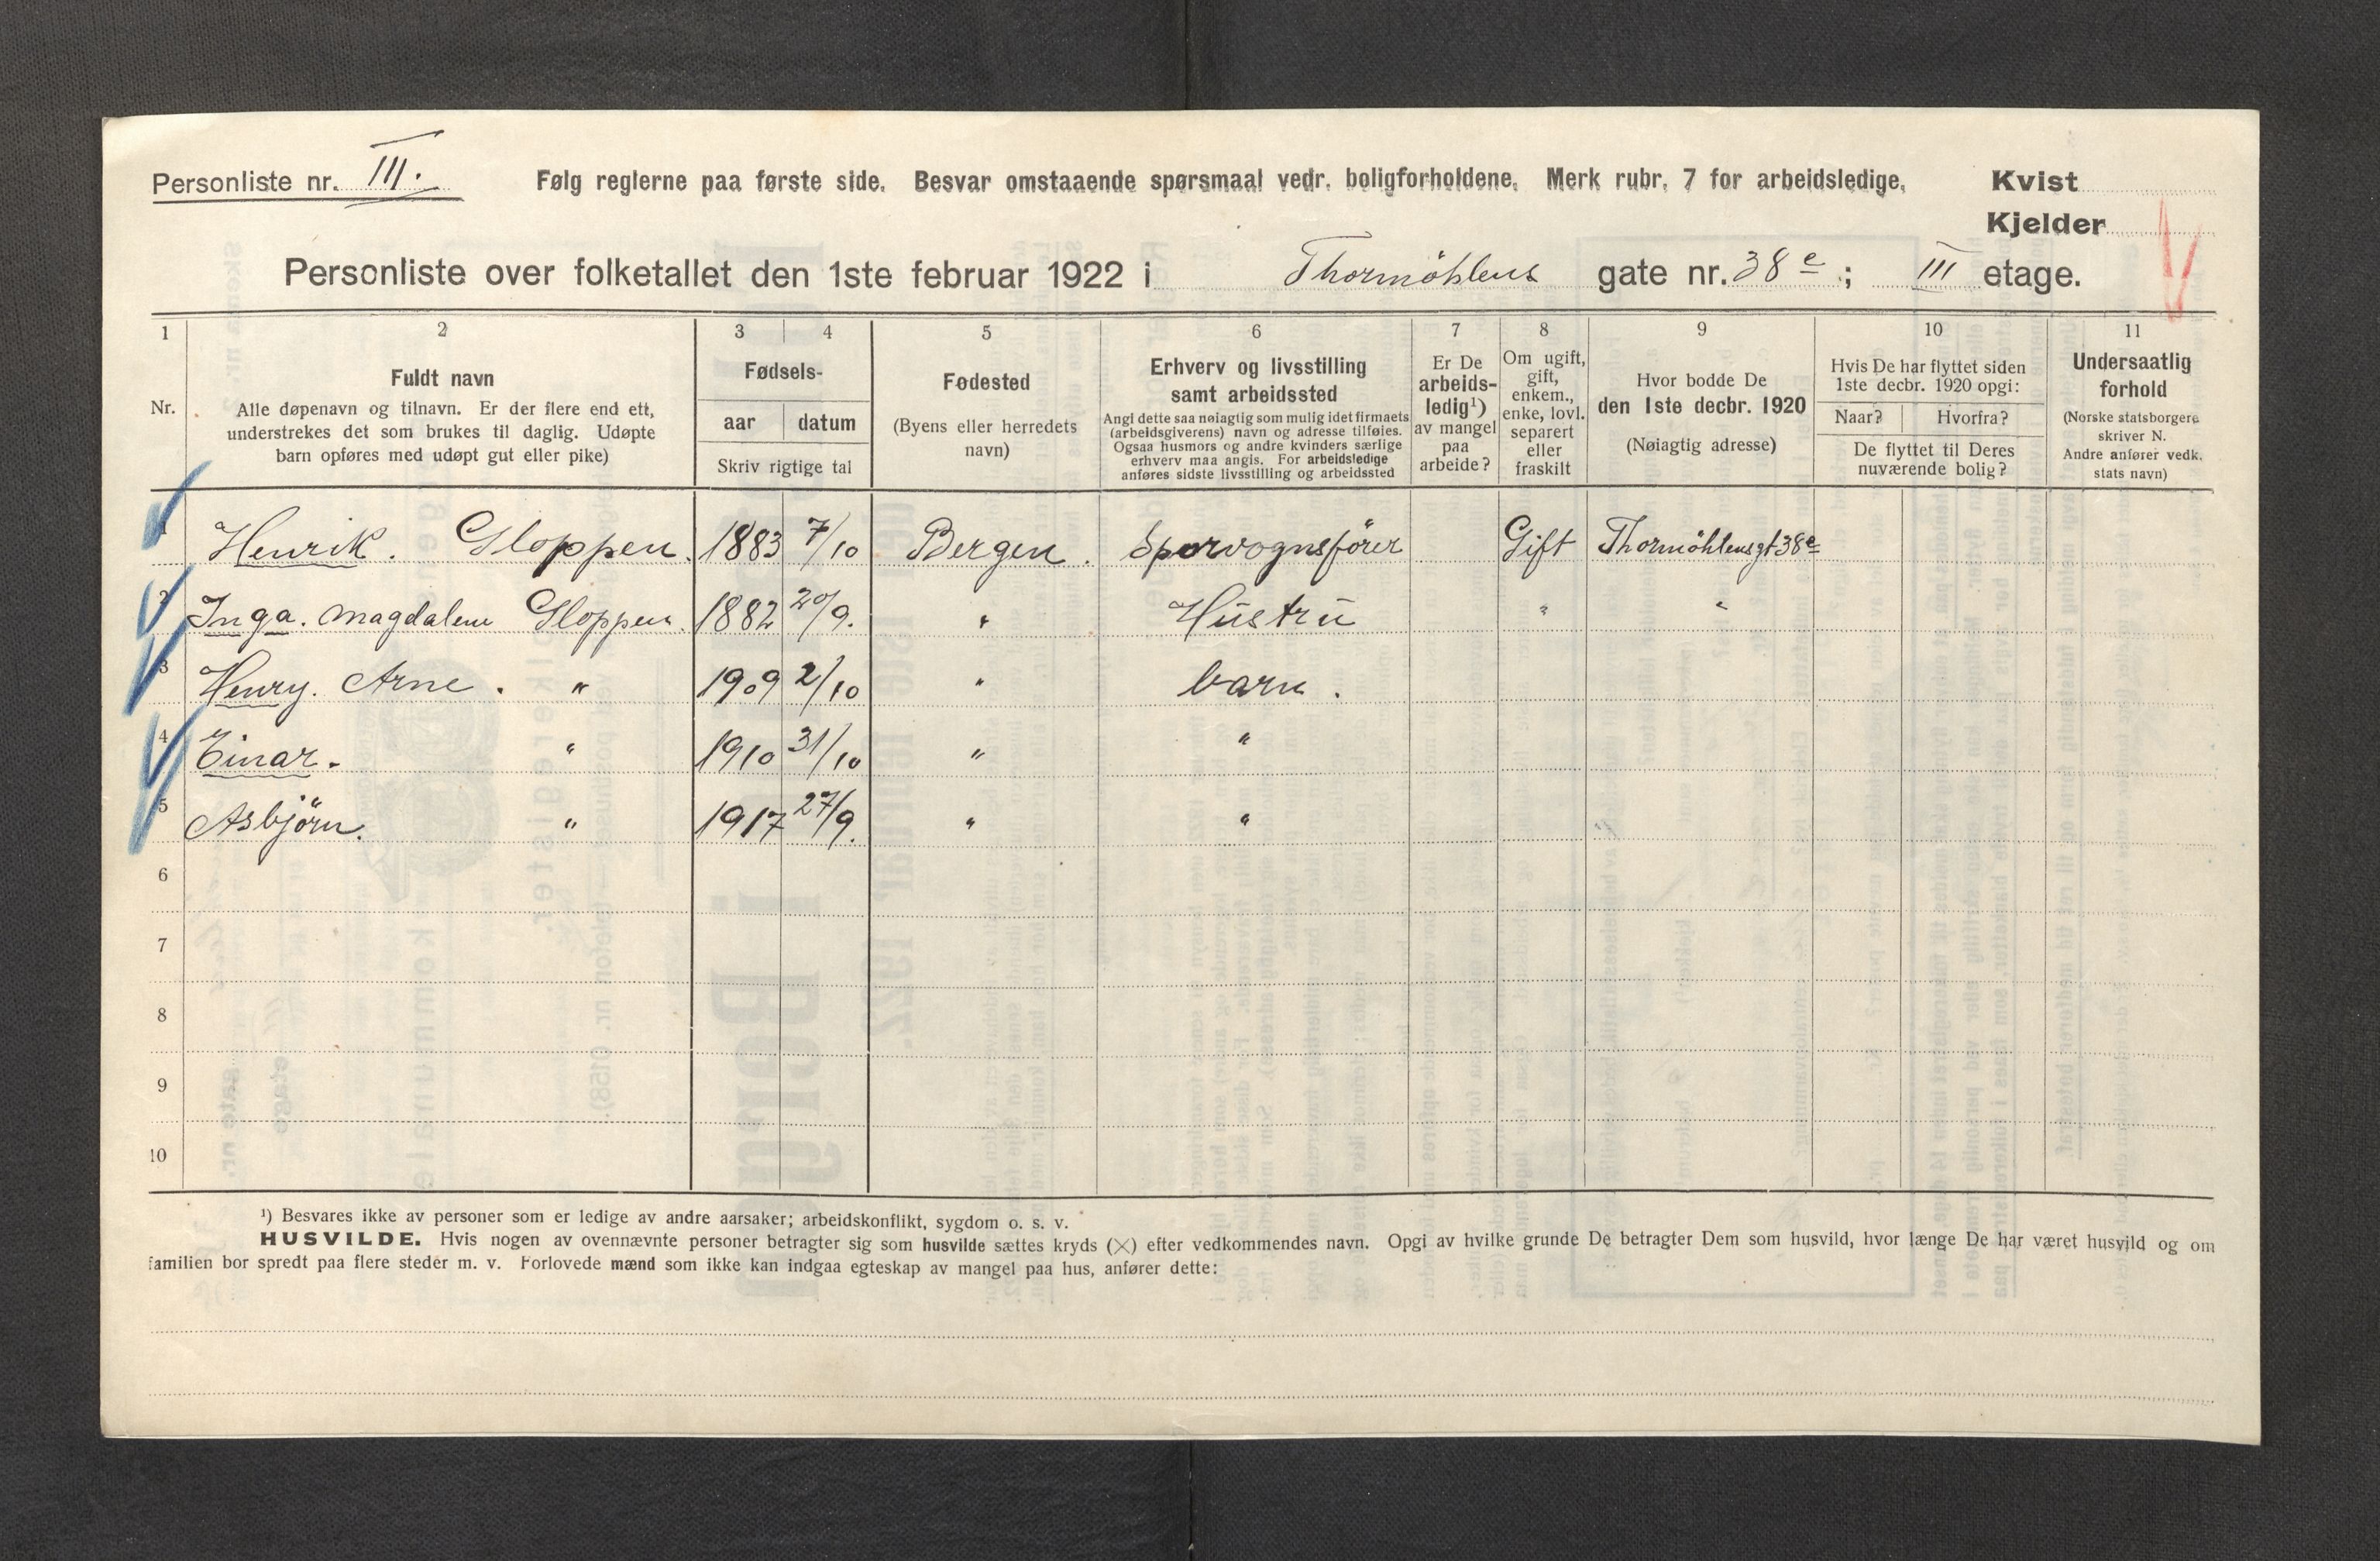 Personliste nr. III. Følg reglerne paa første side. Besvar omstaaende spørsmaal vedr. boligforholdene. Merk rubr. 7 for arbeidsledige. Kvist
Kjelder
Personliste over folketallet den 1ste februar 1922 i Thormöhlens gate nr. 38 e; III etage.
1 2 3 4 5 6 7 8 9 10 11
Nr.
Fuldt navn
Alle døpenavn og tilnavn. Er der flere end ett,
understrekes det som brukes til daglig. Udøpte
barn opføres med udøpt gut eller pike)
Fødsels-
aar datum
Skriv rigtige tal
Fødested
(Byens eller herredets
navn)
Erhverv og livsstilling
samt arbeidssted
Angi dette saa nøiagtig som mulig idet firmaets
(arbeidsgiverens) navn og adresse tilføies.
Ogsaa husmors og andre kvinders særlige
erhverv maa angis. For arbeidsledige
anføres sidste livsstilling og arbeidssted
Er De
arbeids-
ledig¹)
av mangel
paa
arbeide?
Om ugift,
gift,
enkem.,
enke, lovl.
separert
eller
fraskilt
Hvor bodde De
den 1ste decbr. 1920
(Nøiagtig adresse)
Hvis De har flyttet siden
1ste decbr. 1920 opgi:
Naar? Hvorfra?
De flyttet til Deres
nuværende bolig?
Undersaatlig
forhold
(Norske statsborgere
skriver N.
Andre anfører vedk.
stats navn)
1 Henrik. Gloppen. 1883 7/10 Bergen. Sporvognsfører Gift Thormöhlensgt 38e
2 Inga. Magdalene Gloppen. 1882 20/9. " Hustru " "
3 Henry. Arne. " 1909 2/10 " barn.
4 Einar. " 1910 31/10 " "
5 Asbjörn. " 1917 27/9. " "
6
7
8
9
10
¹) Besvares ikke av personer som er ledige av andre aarsaker; arbeidskonflikt, sygdom o. s. v.
HUSVILDE. Hvis nogen av ovennævnte personer betragter sig som husvilde sættes kryds (×) efter vedkommendes navn. Opgi av hvilke grunde De betragter Dem som husvild, hvor længe De har været husvild og om
familien bor spredt paa flere steder m. v. Forlovede mænd som ikke kan indgaa egteskap av mangel paa hus, anfører dette: